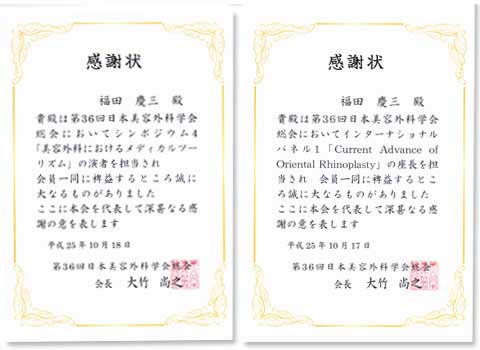 感謝状
福田 慶三 殿
貴殿は第36回日本美容外科学会
総会においてシンポジウム4
「美容外科におけるメディカルツー
リズム」の演者を担当され
会員一同に裨益するところ誠に
大なるものがありました
ここに本会を代表して深甚なる感
謝の意を表します
平成25年10月18日
第36回日本美容外科学会総会
会長 大竹 尚之
感謝状
福田 慶三 殿
貴殿は第36回日本美容外科学会
総会においてインターナショナル
パネル1「Current Advance of
Oriental Rhinoplasty」の座長を担
当され 会員一同に裨益するとこ
ろ誠に大なるものがありました
ここに本会を代表して深甚なる感
謝の意を表します
平成25年10月17日
第36回日本美容外科学会総会
会長 大竹 尚之